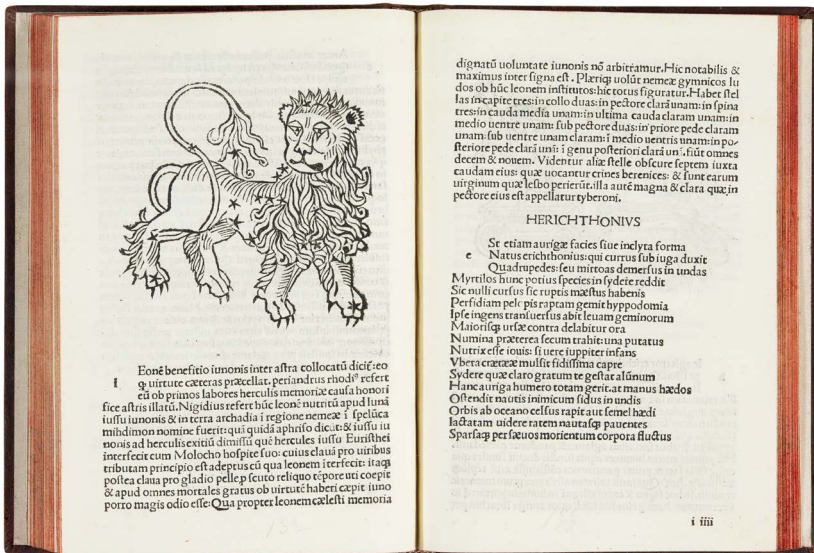 Eonē benefitio iunonis inter astra collocatū dicīt: eo
l ꝙ uirtute cæteras præcellat. periandrus rhodiꝰ refert
eū ob primos labores herculis memoriæ causa honori
fice astris illatū. Nigidius refert hūc leonē nutritū apud lunā
iussu iunonis & in terra archadia ī regione nemeæ ī speluca
mihdimon nomine fuerit: quā quidā aphriso dicūt: & iussu iu
nonis ad herculis exitiū dimissū quē hercules iussu Euristhei
interfecit cum Molocho hospite suo: cuius claua pro uiribus
tributam principio est adeptus cū qua leonem īterfecit: itaqꝫ
postea claua pro gladio pelle pro scuto reliquo tēpore uti coepit
& apud omnes mortales gratus ob uirtutē haberi cæpit iuno
porro magis odio esse: Qua propter leonem cælesti memoria
dignatū uoluntate iunonis nō arbitramur. Hic notabilis &
maximus inter signa est. Pleriqꝫ uolūt nemeæ gymnicos lu
dos ob hūc leonem institutos: hic totus figuratur. Habet stel
las in capite tres: in collo duas: in pectore clarā unam: in spina
tres: in cauda media unam: in ultima cauda claram unam: in
medio uentre unam: sub pectore duas: in priore pede claram
unam: sub uentre unam claram: ī medio uentris unam: in po-
steriore pede clarā unā: ī genu posteriori clarā unā. fiūt omnes
decem & nouem. Videntur aliæ stelle obscure septem iuxta
caudam eius: quæ uocantur crines berenices: & sunt earum
uirginum quæ lesbo perierūt. illa autē magna & clara quæ in
pectore eius est appellatur tyberoni.
HERICHTHONIVS
St etiam aurigæ facies siue inclyta forma
e Natus erichthonius: qui currus sub iuga duxit
Quadrupedes: seu mirtoas demersus in undas
Myrtilos hunc potius species in sydere reddit
Sic nulli cursus sic ruptis mæstus habenis
Perfidiam pelopis raptam gemit hyppodomia
Ipse ingens transuersus abit leuam geminorum
Maiorisqꝫ ursæ contra delabitur ora
Numina præterea secum trahit: una putatus
Nutrix esse iouis: si uere iuppiter infans
Vbera cræteææ mulsit fidissima capre
Sydere quæ claro gratum te gestat alūnum
Hanc auriga humero totam gerit. at manus hædos
Ostendit nautis inimicum sidus in undis
Orbis ab oceano celsus rapit aut semel hædi
Iactatam uidere ratem nautasqꝫ pauentes
Sparsaqꝫ per sæuos morientum corpora fluctus
i iiii